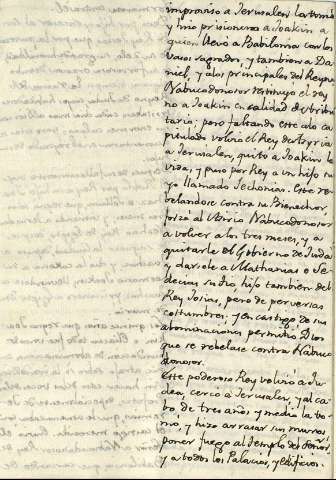 improviso a Jerusalen la tomó
y hizo prisionero a Joakin a
quien llevó a Babilonia con los
vasos sagrados, y tambien a Da
niel, y a los principales del Reyno
Nabucodonosor restituyo el rey
no a Joakin en calidad de tribu
tario; pero faltando este a lo ca
pitulado volvió el Rey de Asyria
a Jerusalen, quitó a Joakin la
vida, y puso por Rey a un hijo su
yo llamado Jeconias. Este re
belandose contra su Bienechor
forzó al Asirio Nabucodonosor
a volver a los tres meses, y a
quitarle el Gobierno de Judá
y darsele a Mathanias o Se
decias su tio, hijo tambien del
Rey Josias, pero de perversas
costumbres: y en castigo de sus
abominaciones permitió Dios
que se rebelase contra Nabuco
donosor.
Este poderoso Rey volvió a Ju
dea, cercó a Jerusalen, y al ca
bo de tres años y medio la to
mó, y hizo arrasar sus muros
poner fuego al Templo del Señor
y a todos los Palacios, y edificios.